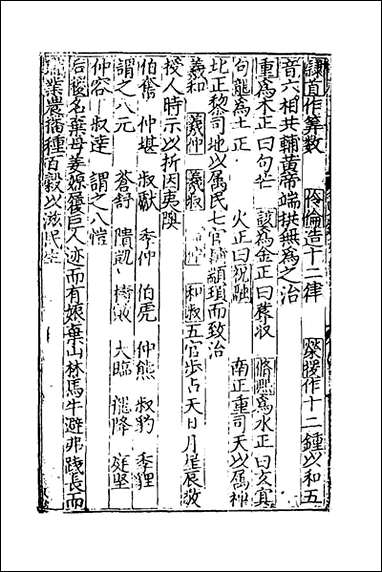 隸首作算數 伶倫造十二律 榮將作十二鍾以和五
音六相共輔黃帝端拱無為之治
重為木正曰句芒 該為金正曰蓐収 脩熙為水正曰玄冥
句龍為土正 火正曰祝融 南正重司天以属神
北正黎司地以属民七官輔顓頊而致治
羲和 羲仲 羲叔 和叔五官歩占天日月星辰敬
授人時示以析因夷隩
伯奮 仲堪 叔獻 季仲 伯虎 仲熊 叔豹 季貍
謂之八元 蒼舒 隤凱 大臨 龍降 庭堅
仲容 叔達 謂之八愷
后稷名棄母姜嫄履巨人迹而有娠棄山林馬牛避弗踐長而
業農播種百穀以滋民